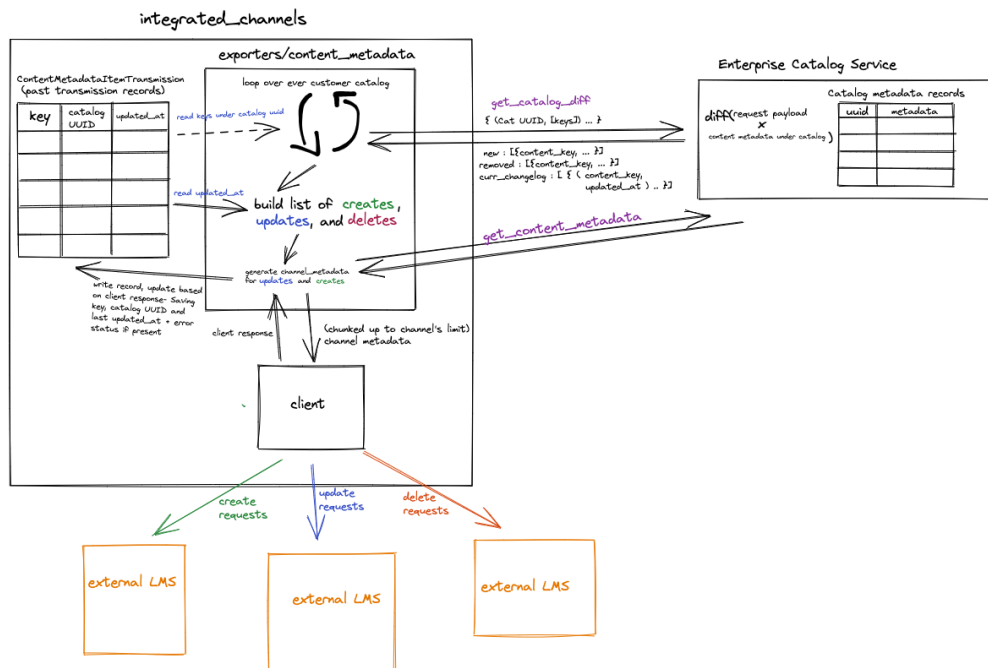 integrated_channels
exporters/content_metadata
ContentMetadataItemTransmission
(past transmission records)
key
catalog
UUID
updated_at
loop over ever customer catalog
read keys under catalog uuid
read updated_at
build list of creates,
updates, and deletes
generate channel_metadata
for updates and creates
write record, update based
on client response- Saving
key, catalog UUID and
last updated_at + error
status if present
client response
(chunked up to channel's limit)
channel metadata
client
get_catalog_diff
{ (Cat UUID, [keys]) ... }
new : [{content_key, ... }]
removed : [{content_key, ... }]
curr_changelog : [ { ( content_key,
updated_at ) .. }]
get_content_metadata
Enterprise Catalog Service
Catalog metadata records
uuid
metadata
diff(request payload
x
content metadata under catalog)
create
requests
update
requests
delete
requests
external LMS
external LMS
external LMS